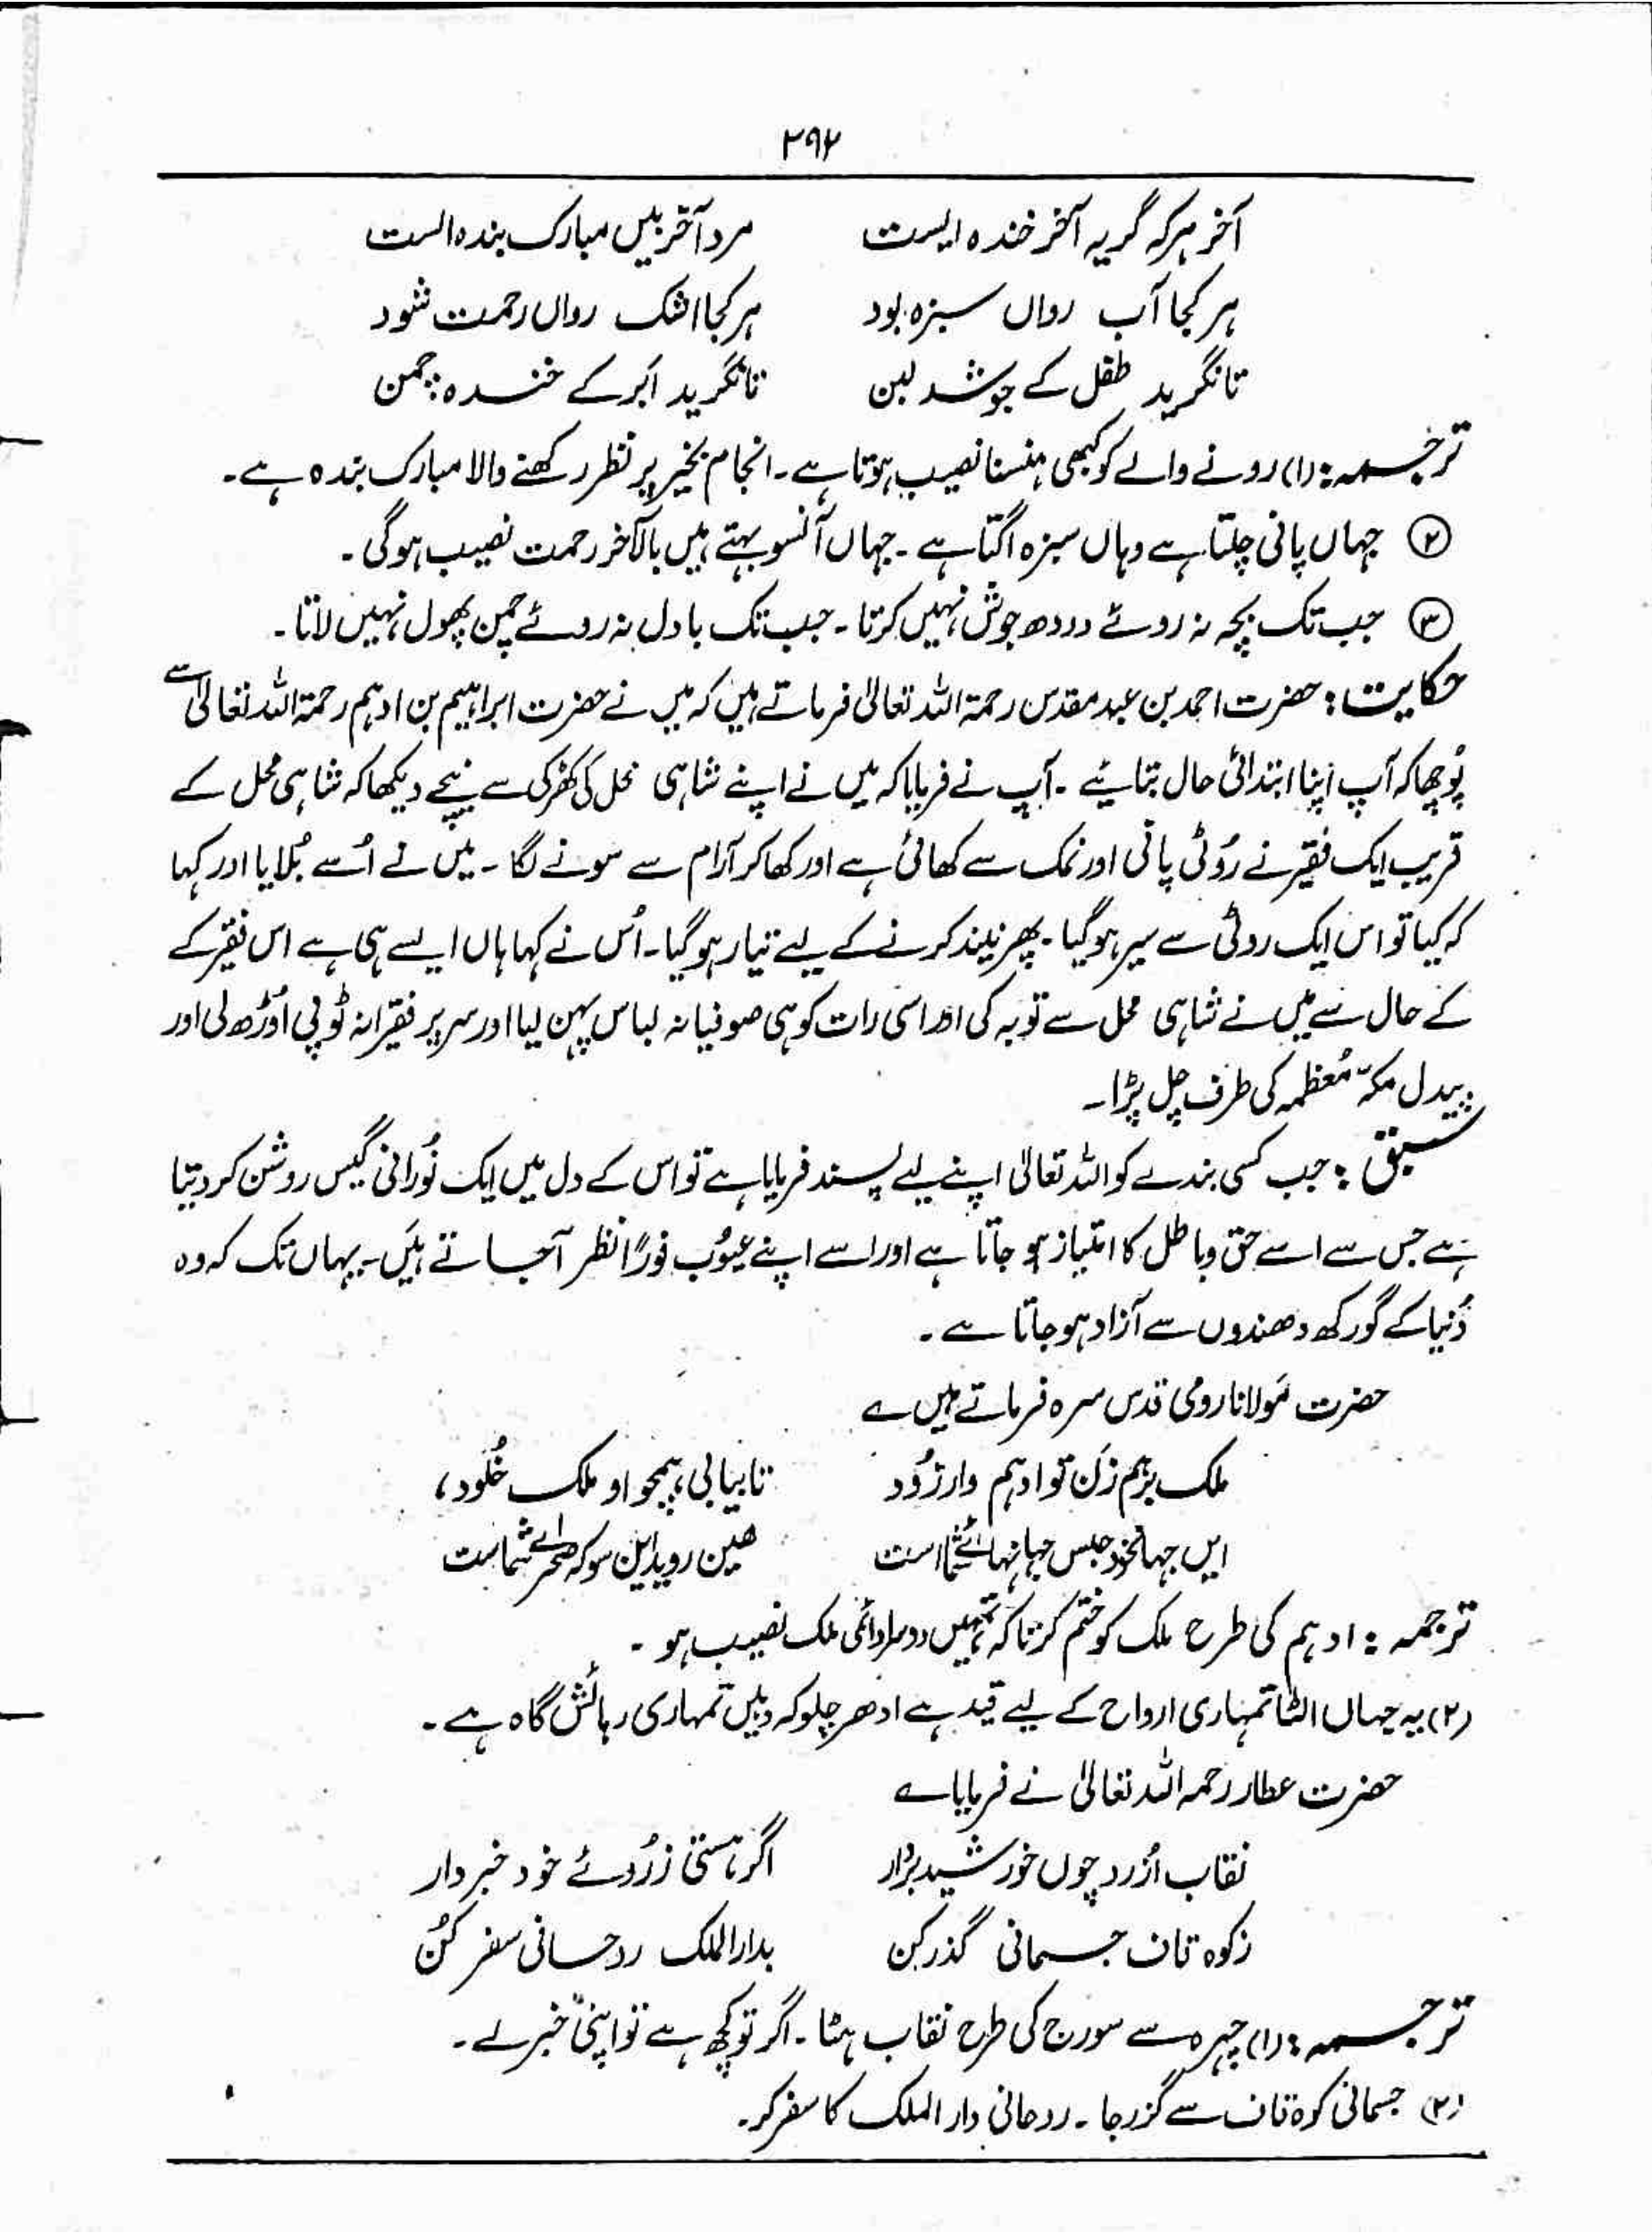 ۲۹۲
آخر ہر کہ گریہ آخر خندہ ایست مرد آخر بیں مبارک بندہ الست
ہر کجا آب رواں سبزہ بود ہر کجا اشک رواں رحمت شود
تا نگرید طفل کے جوشد لبن تا نگرید ابر کے خندہ چمن
ترجمہ: (۱) رونے والے کو کبھی ہنسنا نصیب ہوتا ہے۔ انجام بخیر پر نظر رکھنے والا مبارک بندہ ہے۔
② جہاں پانی چلتا ہے وہاں سبزہ اگتا ہے۔ جہاں آنسو بہتے ہیں بالآخر رحمت نصیب ہوگی۔
③ جب تک بچہ نہ روئے دودھ جوش نہیں کرتا۔ جب تک بادل نہ روئے چمن پھول نہیں لاتا۔
حکایت: حضرت احمد بن عبد مقدس رحمۃ اللہ تعالیٰ فرماتے ہیں کہ میں نے حضرت ابراہیم بن ادہم رحمۃ اللہ تعالیٰ سے
پُوچھا کہ آپ اپنا ابتدائی حال بتائیے۔ آپ نے فرمایا کہ میں نے اپنے شاہی محل کی کھڑکی سے نیچے دیکھا کہ شاہی محل کے
قریب ایک فقیر نے رُوٹی پانی اور نمک سے کھائی ہے اور کھا کر آرام سے سونے لگا۔ میں نے اُسے بُلایا اور کہا
کہ کیا تو اس ایک روٹی سے سیر ہو گیا۔ پھر نیند کرنے کے لیے تیار ہو گیا۔ اُس نے کہا ہاں ایسے ہی ہے اس فقیر کے
کے حال سے میں نے شاہی محل سے توبہ کی اور اسی رات کو ہی صوفیانہ لباس پہن لیا اور سر پر فقیرانہ ٹوپی اوڑھ لی اور
پیدل مکہّ مُعظمہ کی طرف چل پڑا۔
سبق: جب کسی بندے کو اللہ تعالیٰ اپنے لیے پسند فرمایا ہے تو اس کے دل میں ایک نُورانی گیس روشن کر دیتا
ہے جس سے اسے حق و باطل کا امتیاز ہو جاتا ہے اور اسے اپنے عیوُب فورًا نظر آجاتے ہیَں۔ یہاں تک کہ وہ
دُنیا کے گورکھ دھندوں سے آزاد ہو جاتا ہے۔
حضرت مَولانا رومی قدس سرہ فرماتے ہیں ے
ملک برہم زَن تو ادہم وار زُود تا بیابی ہمچو او ملک خُلود،
ایں جہاں خود حبس جہانہائے شما است ھین روید ایں سو کہ صحرائے شماست
ترجمہ: ادہم کی طرح ملک کو ختم کر تا کہ تمہیں دوسرا دائمی ملک نصیب ہو۔
(۲) یہ جہاں الٹا تمہاری ارواح کے لیے قید ہے ادھر چلو کہ وہیں تمہاری رہائش گاہ ہے۔
حضرت عطار رحمہ اللہ تعالیٰ نے فرمایا ے
نقاب از رد چوں خورشید بردار اگر ہستی ز رُوئے خود خبر دار
ز کوہ قاف جسمانی گذر کن بدار الملک روحانی سفر کُن
ترجمہ: (۱) چہرہ سے سورج کی طرح نقاب ہٹا۔ اگر تو کچھ ہے تو اپنی خبر لے۔
(۲) جسمانی کوہ قاف سے گزر جا۔ روحانی دار الملک کا سفر کر۔